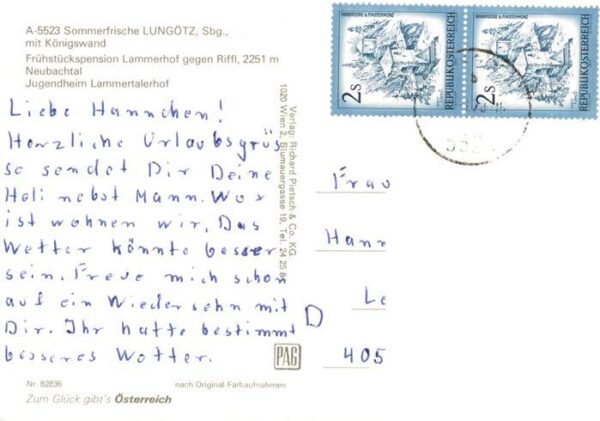 A-5523 Sommerfrische LUNGÖTZ, Sbg.,
mit Königswand
Frühstückspension Lammerhof gegen Riffl, 2251 m
Neubachtal
Jugendheim Lammertalerhof
Liebe Hannchen!
Herzliche Urlaubsgrüs
se sendet Dir Deine
Heli nebst Mann. Wo x
ist wohnen wir. Das
Wetter könnte besser
sein. Freue mich schon
auf ein Wiedersehn mit
Dir. Ihr hatte bestimmt
besseres Wetter.
Nr. 82836
nach Original-Farbaufnahmen
Zum Glück gibt's Österreich
Verlag: Richard Pietsch & Co. KG.
1020 Wien 2, Blumauergasse 19, Tel. 24 25 84
PAG
2s
REPUBLIK ÖSTERREICH
2s
REPUBLIK ÖSTERREICH
Frau
Hann
D
Le
405